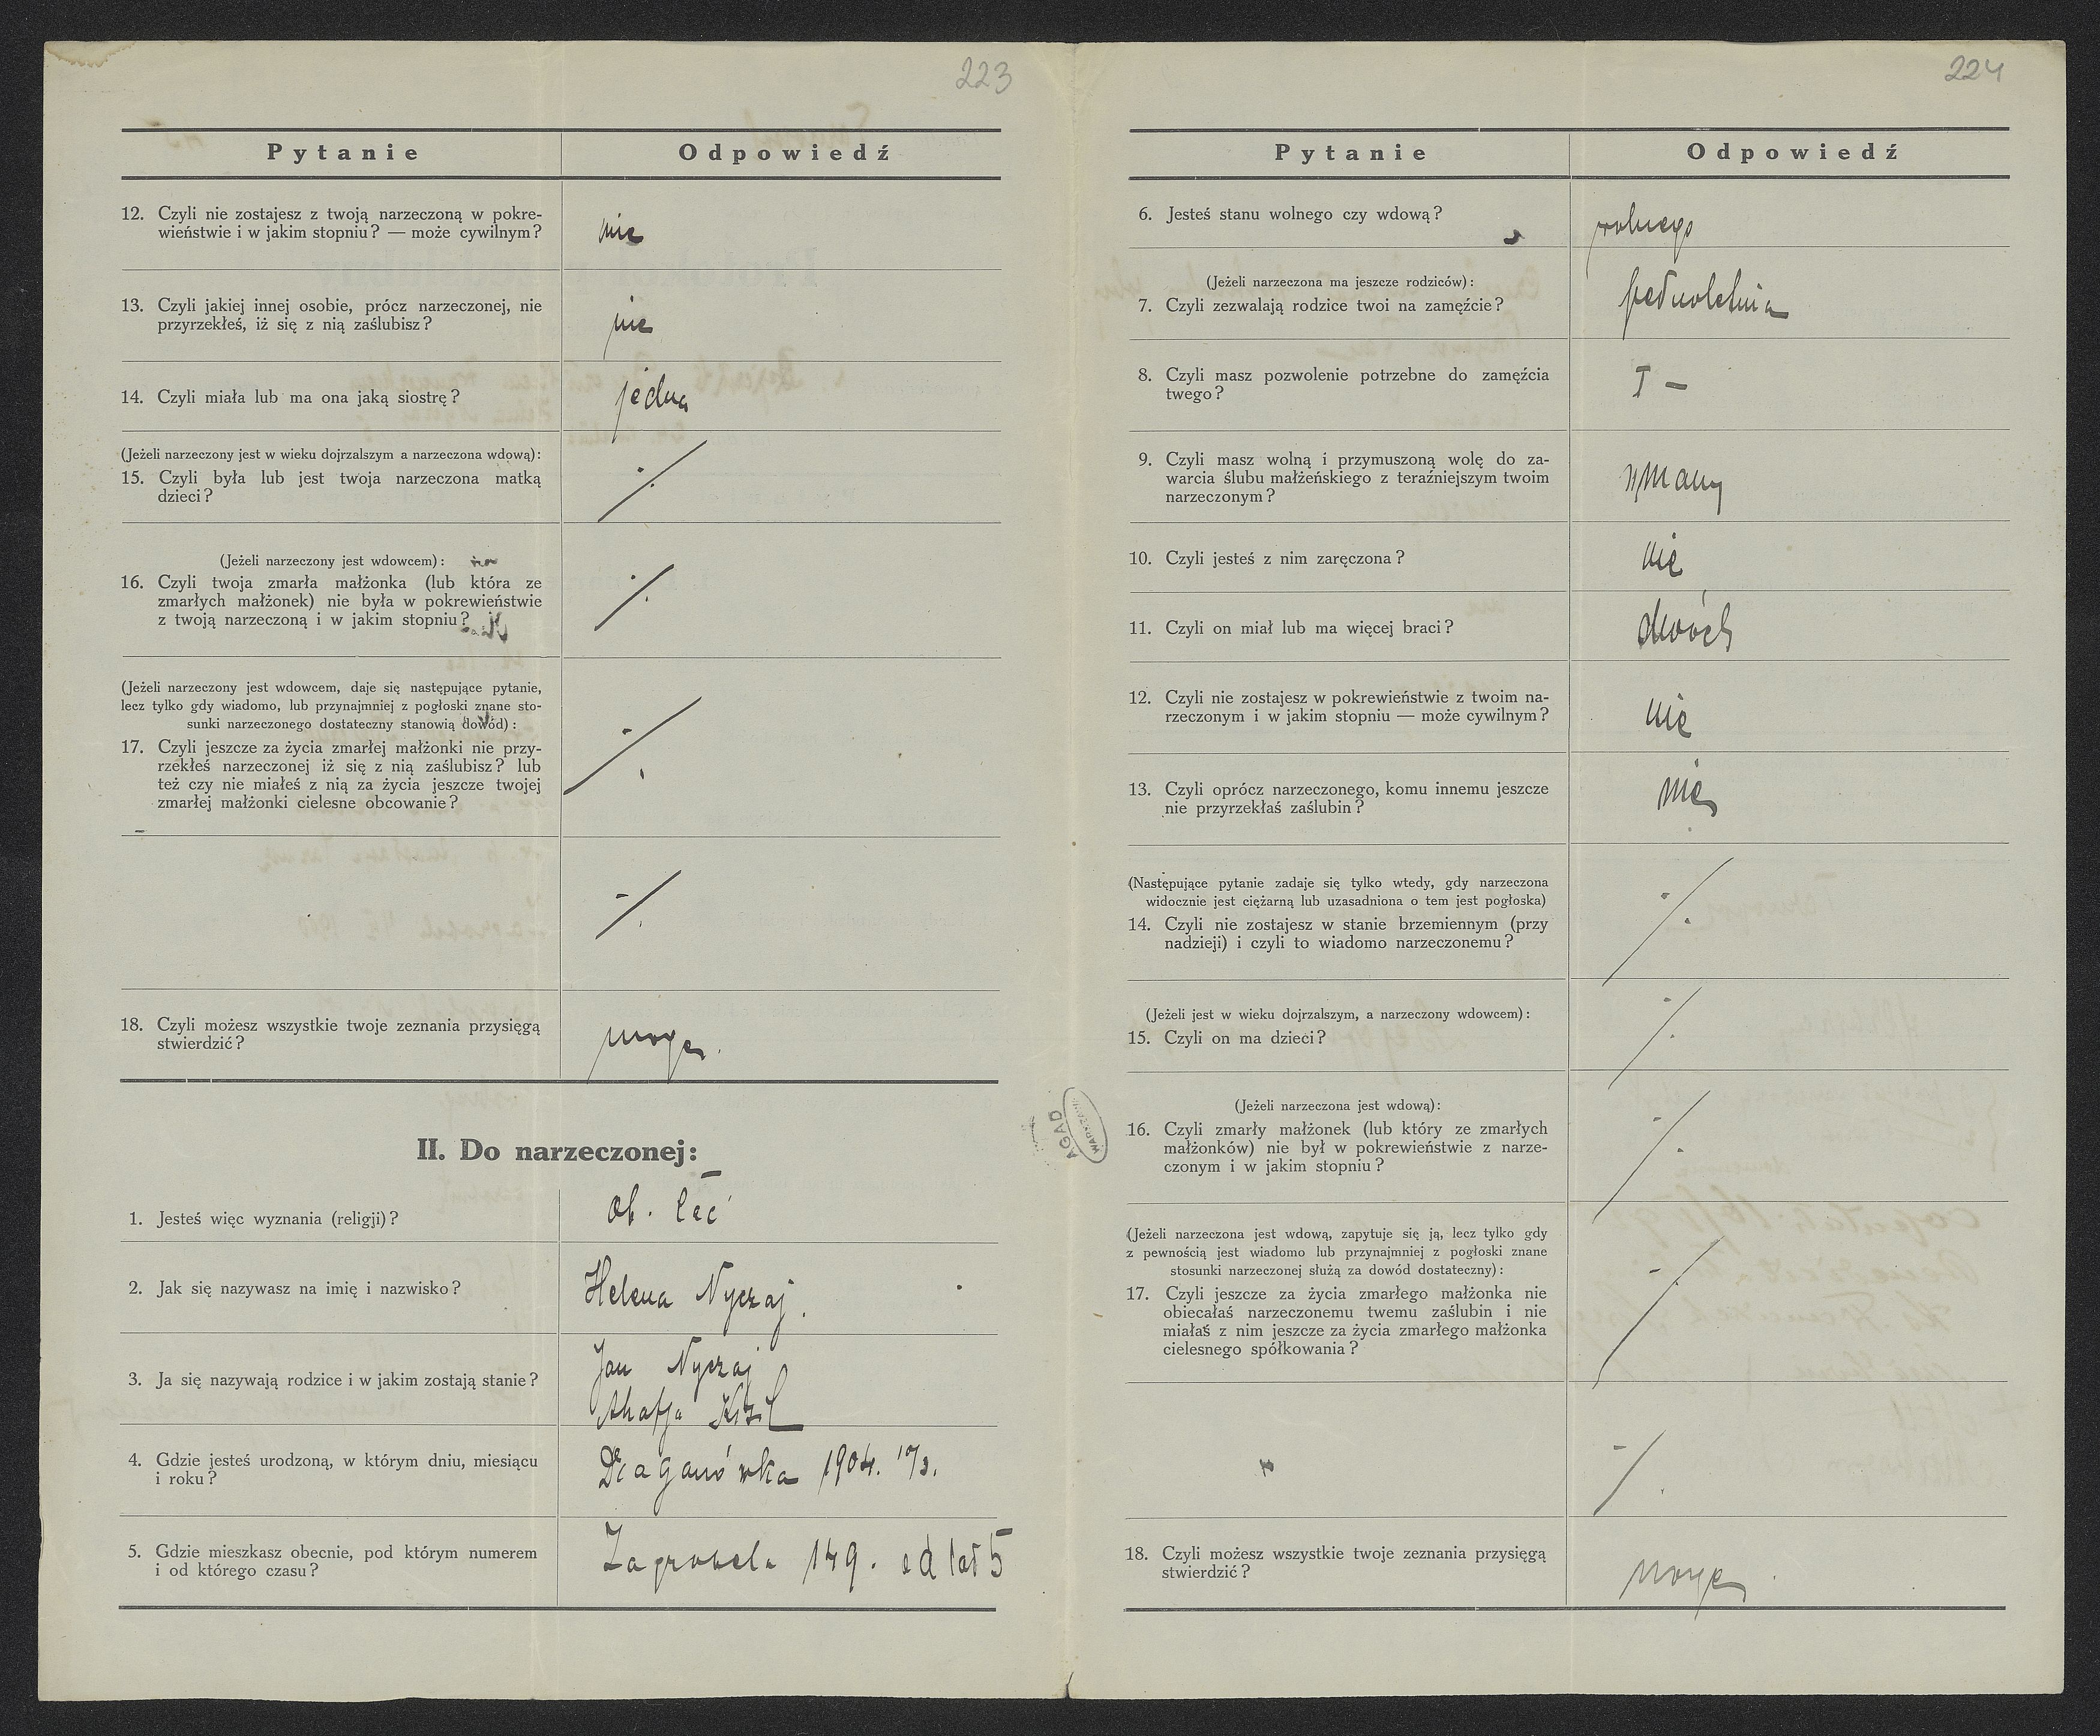 223
Pytanie
Odpowiedź
12. Czyli nie zostajesz z twoją narzeczoną w pokre-
wieństwie i w jakim stopniu? — może cywilnym?
nie
13. Czyli jakiej innej osobie, prócz narzeczonej, nie
przyrzekłeś, iż się z nią zaślubisz?
nie
14. Czyli miała lub ma ona jaką siostrę?
jedna
(Jeżeli narzeczony jest w wieku dojrzalszym a narzeczona wdową):
15. Czyli była lub jest twoja narzeczona matką
dzieci?
(Jeżeli narzeczony jest wdowcem):
16. Czyli twoja zmarła małżonka (lub która ze
zmarłych małżonek) nie była w pokrewieństwie
z twoją narzeczoną i w jakim stopniu?
(Jeżeli narzeczony jest wdowcem, daje się następujące pytanie,
lecz tylko gdy wiadomo, lub przynajmniej z pogłoski znane sto-
sunki narzeczonego dostateczny stanowią dowód):
17. Czyli jeszcze za życia zmarłej małżonki nie przy-
rzekłeś narzeczonej iż się z nią zaślubisz? lub
też czy nie miałeś z nią za życia jeszcze twojej
zmarłej małżonki cielesne obcowanie?
18. Czyli możesz wszystkie twoje zeznania przysięgą
stwierdzić?
mogę.
II. Do narzeczonej:
1. Jesteś więc wyznania (religji)?
ob. łać
2. Jak się nazywasz na imię i nazwisko?
Helena Nyczaj.
3. Ja się nazywają rodzice i w jakim zostają stanie?
Jan Nyczaj
Ahafja
4. Gdzie jesteś urodzoną, w którym dniu, miesiącu
i roku?
Draganówka 1904.
5. Gdzie mieszkasz obecnie, pod którym numerem
i od którego czasu?
Zagrobela 149. od lat 5
AGAD
WARSZAWA
224
Pytanie
Odpowiedź
6. Jesteś stanu wolnego czy wdową?
wolnego
(Jeżeli narzeczona ma jeszcze rodziców):
7. Czyli zezwalają rodzice twoi na zamęźcie?
pełnoletnia
8. Czyli masz pozwolenie potrzebne do zamęźcia
twego?
9. Czyli masz wolną i przymuszoną wolę do za-
warcia ślubu małżeńskiego z teraźniejszym twoim
narzeczonym?
10. Czyli jesteś z nim zaręczona?
nie
11. Czyli on miał lub ma więcej braci?
dwóch
12. Czyli nie zostajesz w pokrewieństwie z twoim na-
rzeczonym i w jakim stopniu — może cywilnym?
nie
13. Czyli oprócz narzeczonego, komu innemu jeszcze
nie przyrzekłaś zaślubin?
nie
(Następujące pytanie zadaje się tylko wtedy, gdy narzeczona
widocznie jest ciężarną lub uzasadniona o tem jest pogłoska)
14. Czyli nie zostajesz w stanie brzemiennym (przy
nadzieji) i czyli to wiadomo narzeczonemu?
(Jeżeli jest w wieku dojrzalszym, a narzeczony wdowcem):
15. Czyli on ma dzieci?
(Jeżeli narzeczona jest wdową):
16. Czyli zmarły małżonek (lub który ze zmarłych
małżonków) nie był w pokrewieństwie z narze-
czonym i w jakim stopniu?
(Jeżeli narzeczona jest wdową, zapytuje się ją, lecz tylko gdy
z pewnością jest wiadomo lub przynajmniej z pogłoski znane
stosunki narzeczonej służą za dowód dostateczny):
17. Czyli jeszcze za życia zmarłego małżonka nie
obiecałaś narzeczonemu twemu zaślubin i nie
miałaś z nim jeszcze za życia zmarłego małżonka
cielesnego spółkowania?
18. Czyli możesz wszystkie twoje zeznania przysięgą
stwierdzić?
mogę